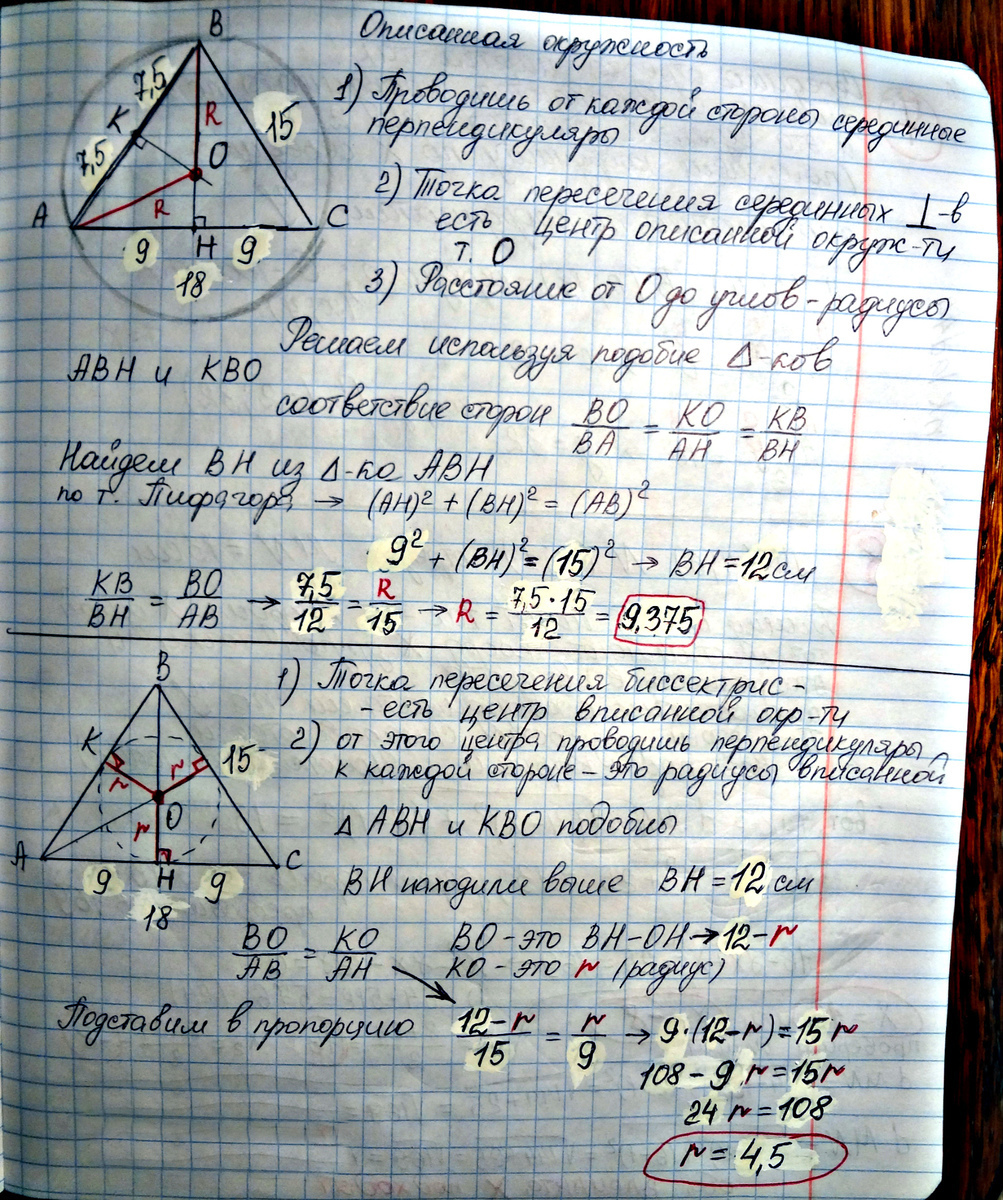 Описанная окружность
B
7,5
K
R
15
7,5
O
R
A
C
9
H
9
18
1) Проводишь от каждой стороны серединные
перпендикуляры
2) Точка пересечения серединных ⊥-в
есть центр описанной окруж-ти
т. O
3) Расстояние от O до углов - радиусы
Решаем используя подобие Δ-ков
ABH и KBO
соответствие сторон BO/BA = KO/AH = KB/BH
Найдем BH из Δ-ка ABH
по т. Пифагора → (AH)² + (BH)² = (AB)²
9² + (BH)² = (15)² → BH = 12 см
KB/BH = BO/AB → 7,5/12 = R/15 → R = 7,5·15/12 = 9,375
B
K
r
r
15
O
r
A
C
9
H
9
18
1) Точка пересечения биссектрис -
- есть центр вписанной окр-ти
2) от этого центра проводишь перпендикуляры
к каждой стороне - это радиусы вписанной
Δ ABH и KBO подобны
BH находили выше BH = 12 см
BO/AB = KO/AH
BO - это BH-OH → 12-r
KO - это r (радиус)
Подставим в пропорцию 12-r/15 = r/9 → 9·(12-r)=15r
108 - 9r = 15r
24 r = 108
r = 4,5